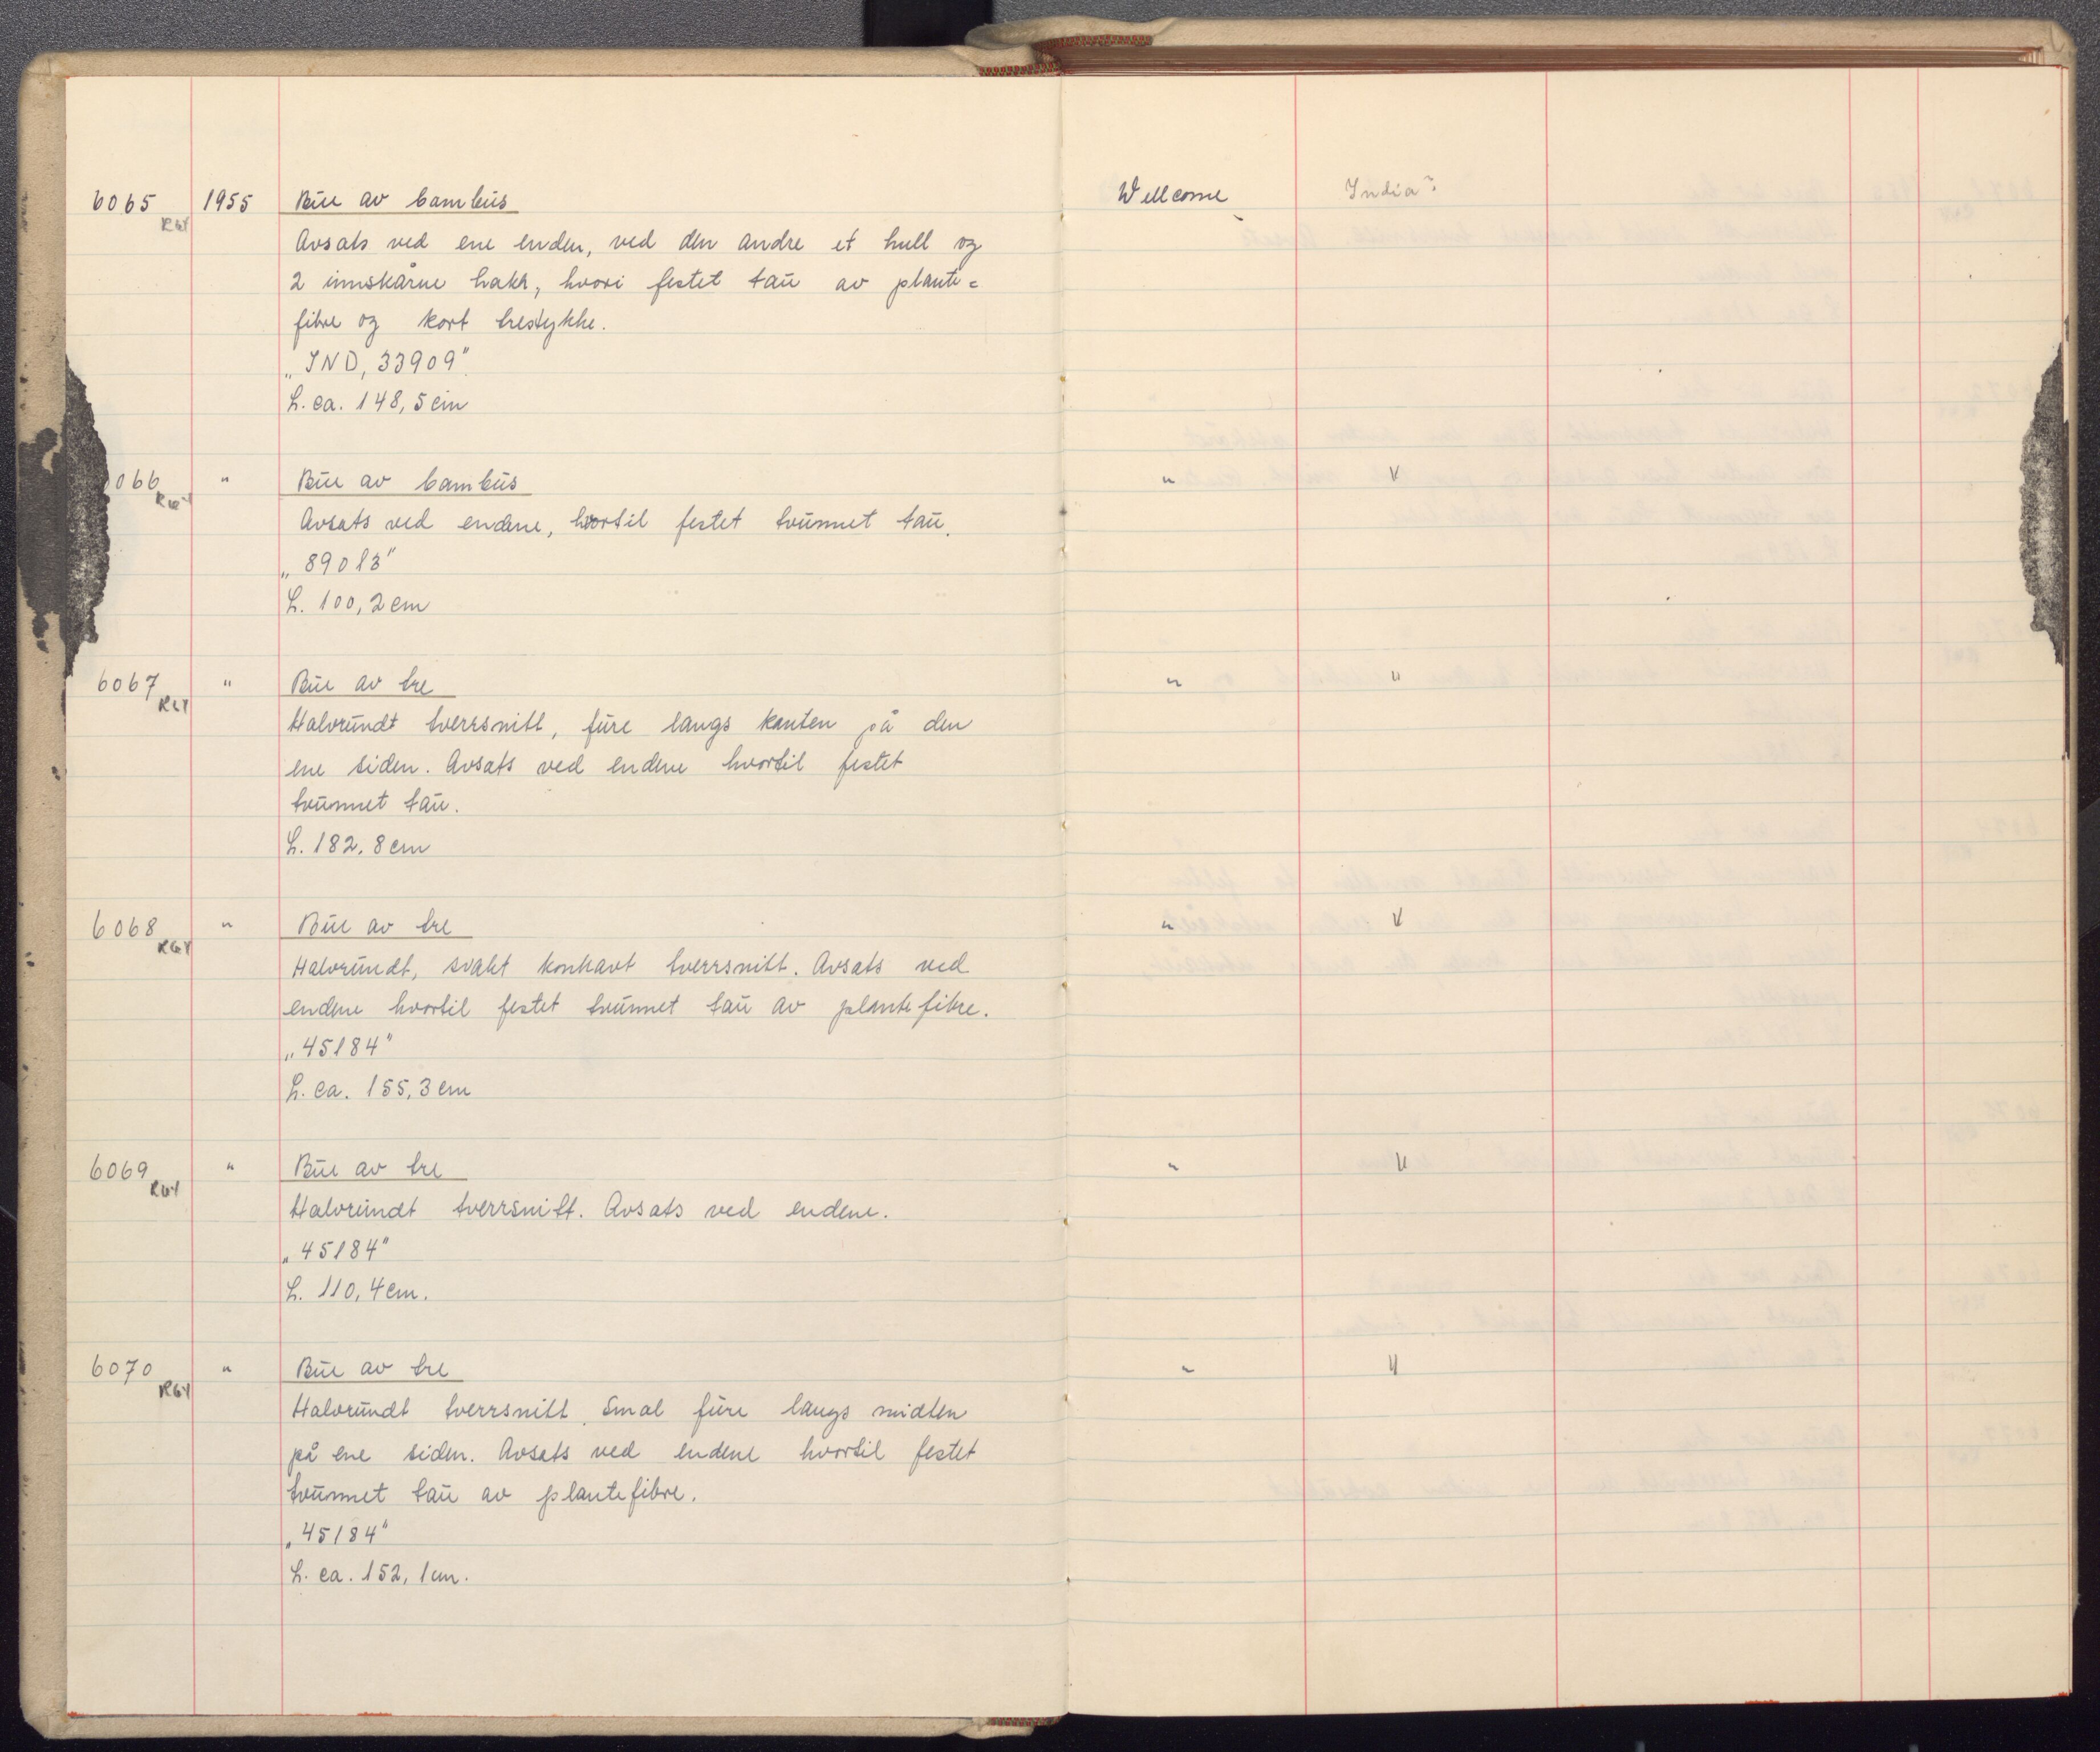 6065 1955 Bue av bambus Wellcome India?
R64
Avsats ved ene enden, ved den andre et hull og
2 innskårne hakk, hvori festet tau av plante=
fibre og kort trestykke.
„IND, 33909”.
L. ca. 148,5 cm
066 " Bue av bambus " "
Avsats ved endene, hvortil festet tvunnet tau.
„89013”
L. 100,2 cm
6067 " Bue av tre " "
R64
Halvrundt tverrsnitt, fure langs kanten på den
ene siden. Avsats ved endene hvortil festet
tvunnet tau.
L. 182,8 cm
6068 " Bue av tre " "
R64
Halvrundt, svakt konkavt tverrsnitt. Avsats ved
endene hvortil festet tvunnet tau av plantefibre.
„45184”
L. ca. 155,3 cm
6069 " Bue av tre " "
R64
Halvrundt tverrsnitt. Avsats ved endene.
„45184”
L. 110,4 cm.
6070 " Bue av tre " "
R64
Halvrundt tverrsnitt, smal fure langs midten
på ene siden. Avsats ved endene hvortil festet
tvunnet tau av plantefibre.
„45184”
L. ca. 152,1 cm.